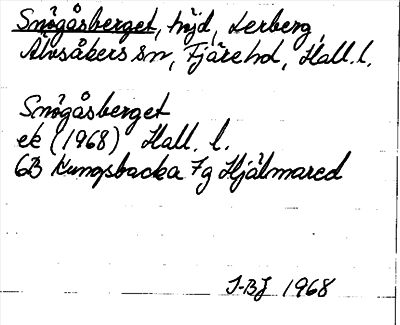 Snögåsberget, höjd, Lerberg,
Älvsåkers sn, Fjäre hd, Hall. l.
Snögåsberget
ek (1968) Hall. l.
6B Kungsbacka 7g Hjälmared
I-BJ 1968